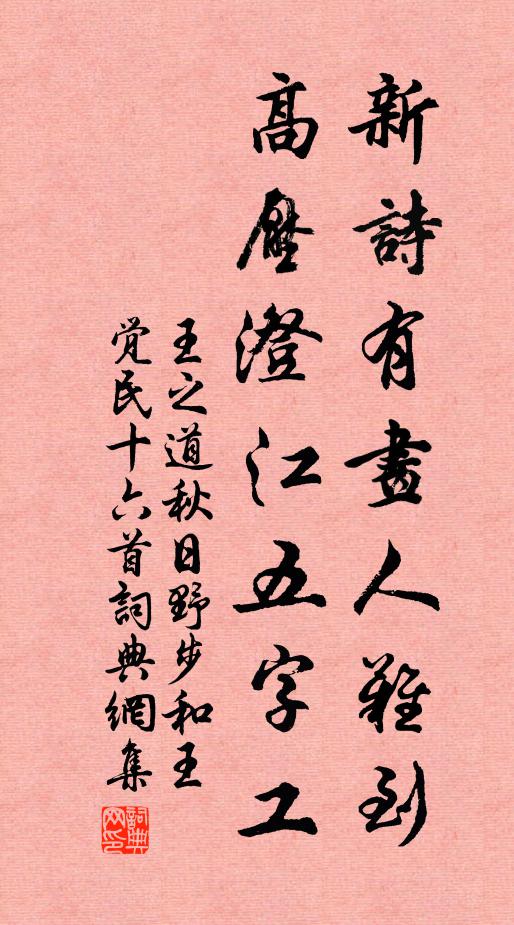 新詩有畫人難到
高壓澄江五字工
王之道秋日野步和王
覺民十六首詞典網集
詞典网印